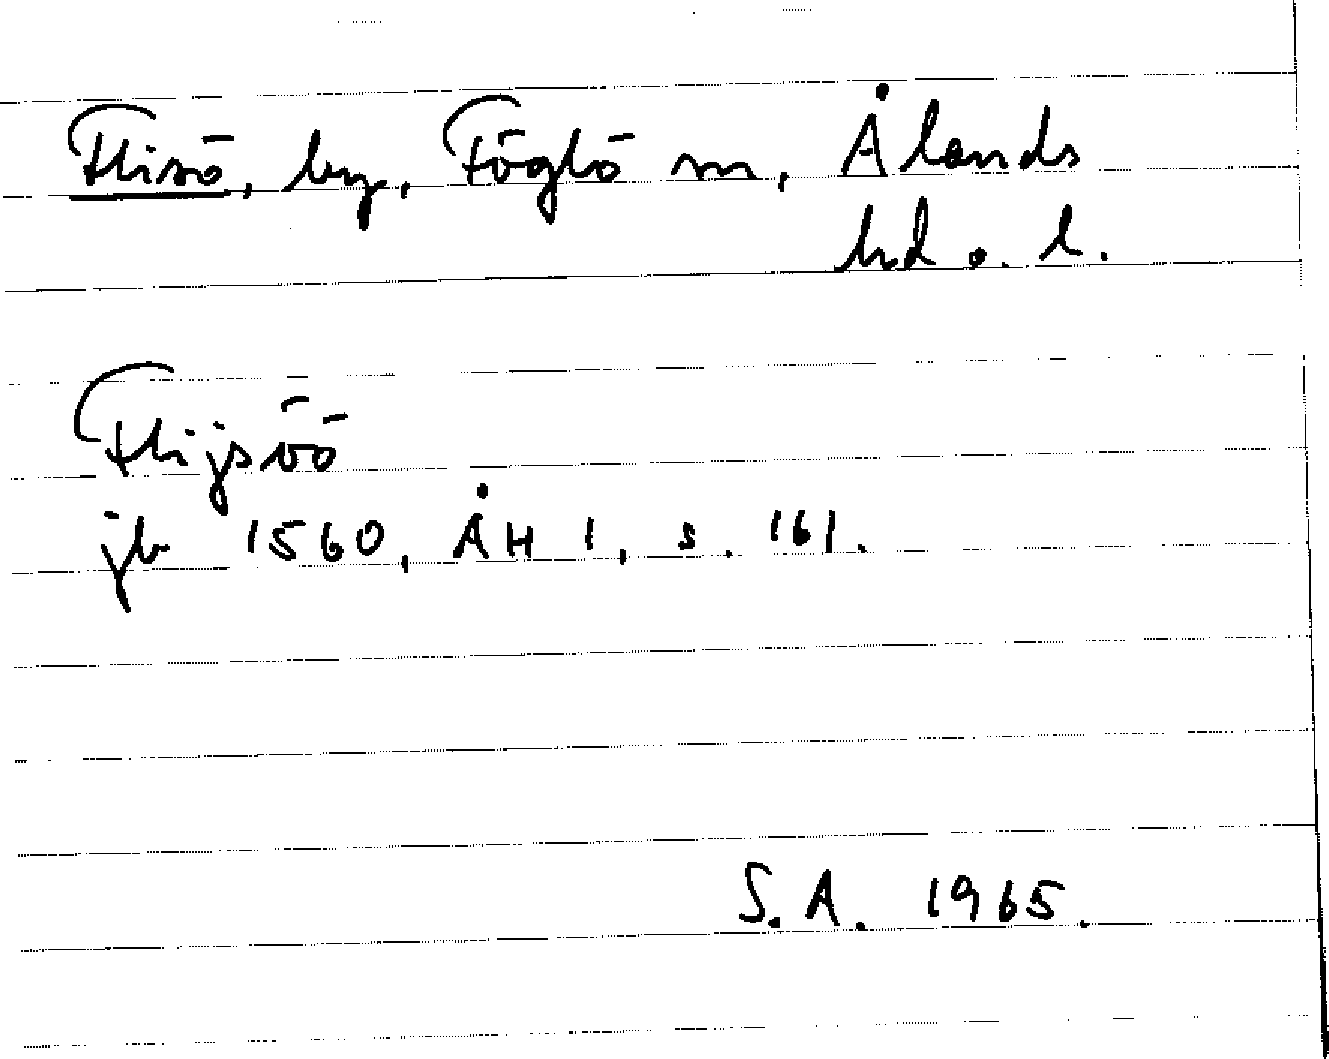 Flisö, by, Föglö sn, Ålands
hd o. l.
Flijsöö
jb 1560, ÅH 1, s. 161.
S.A. 1965.